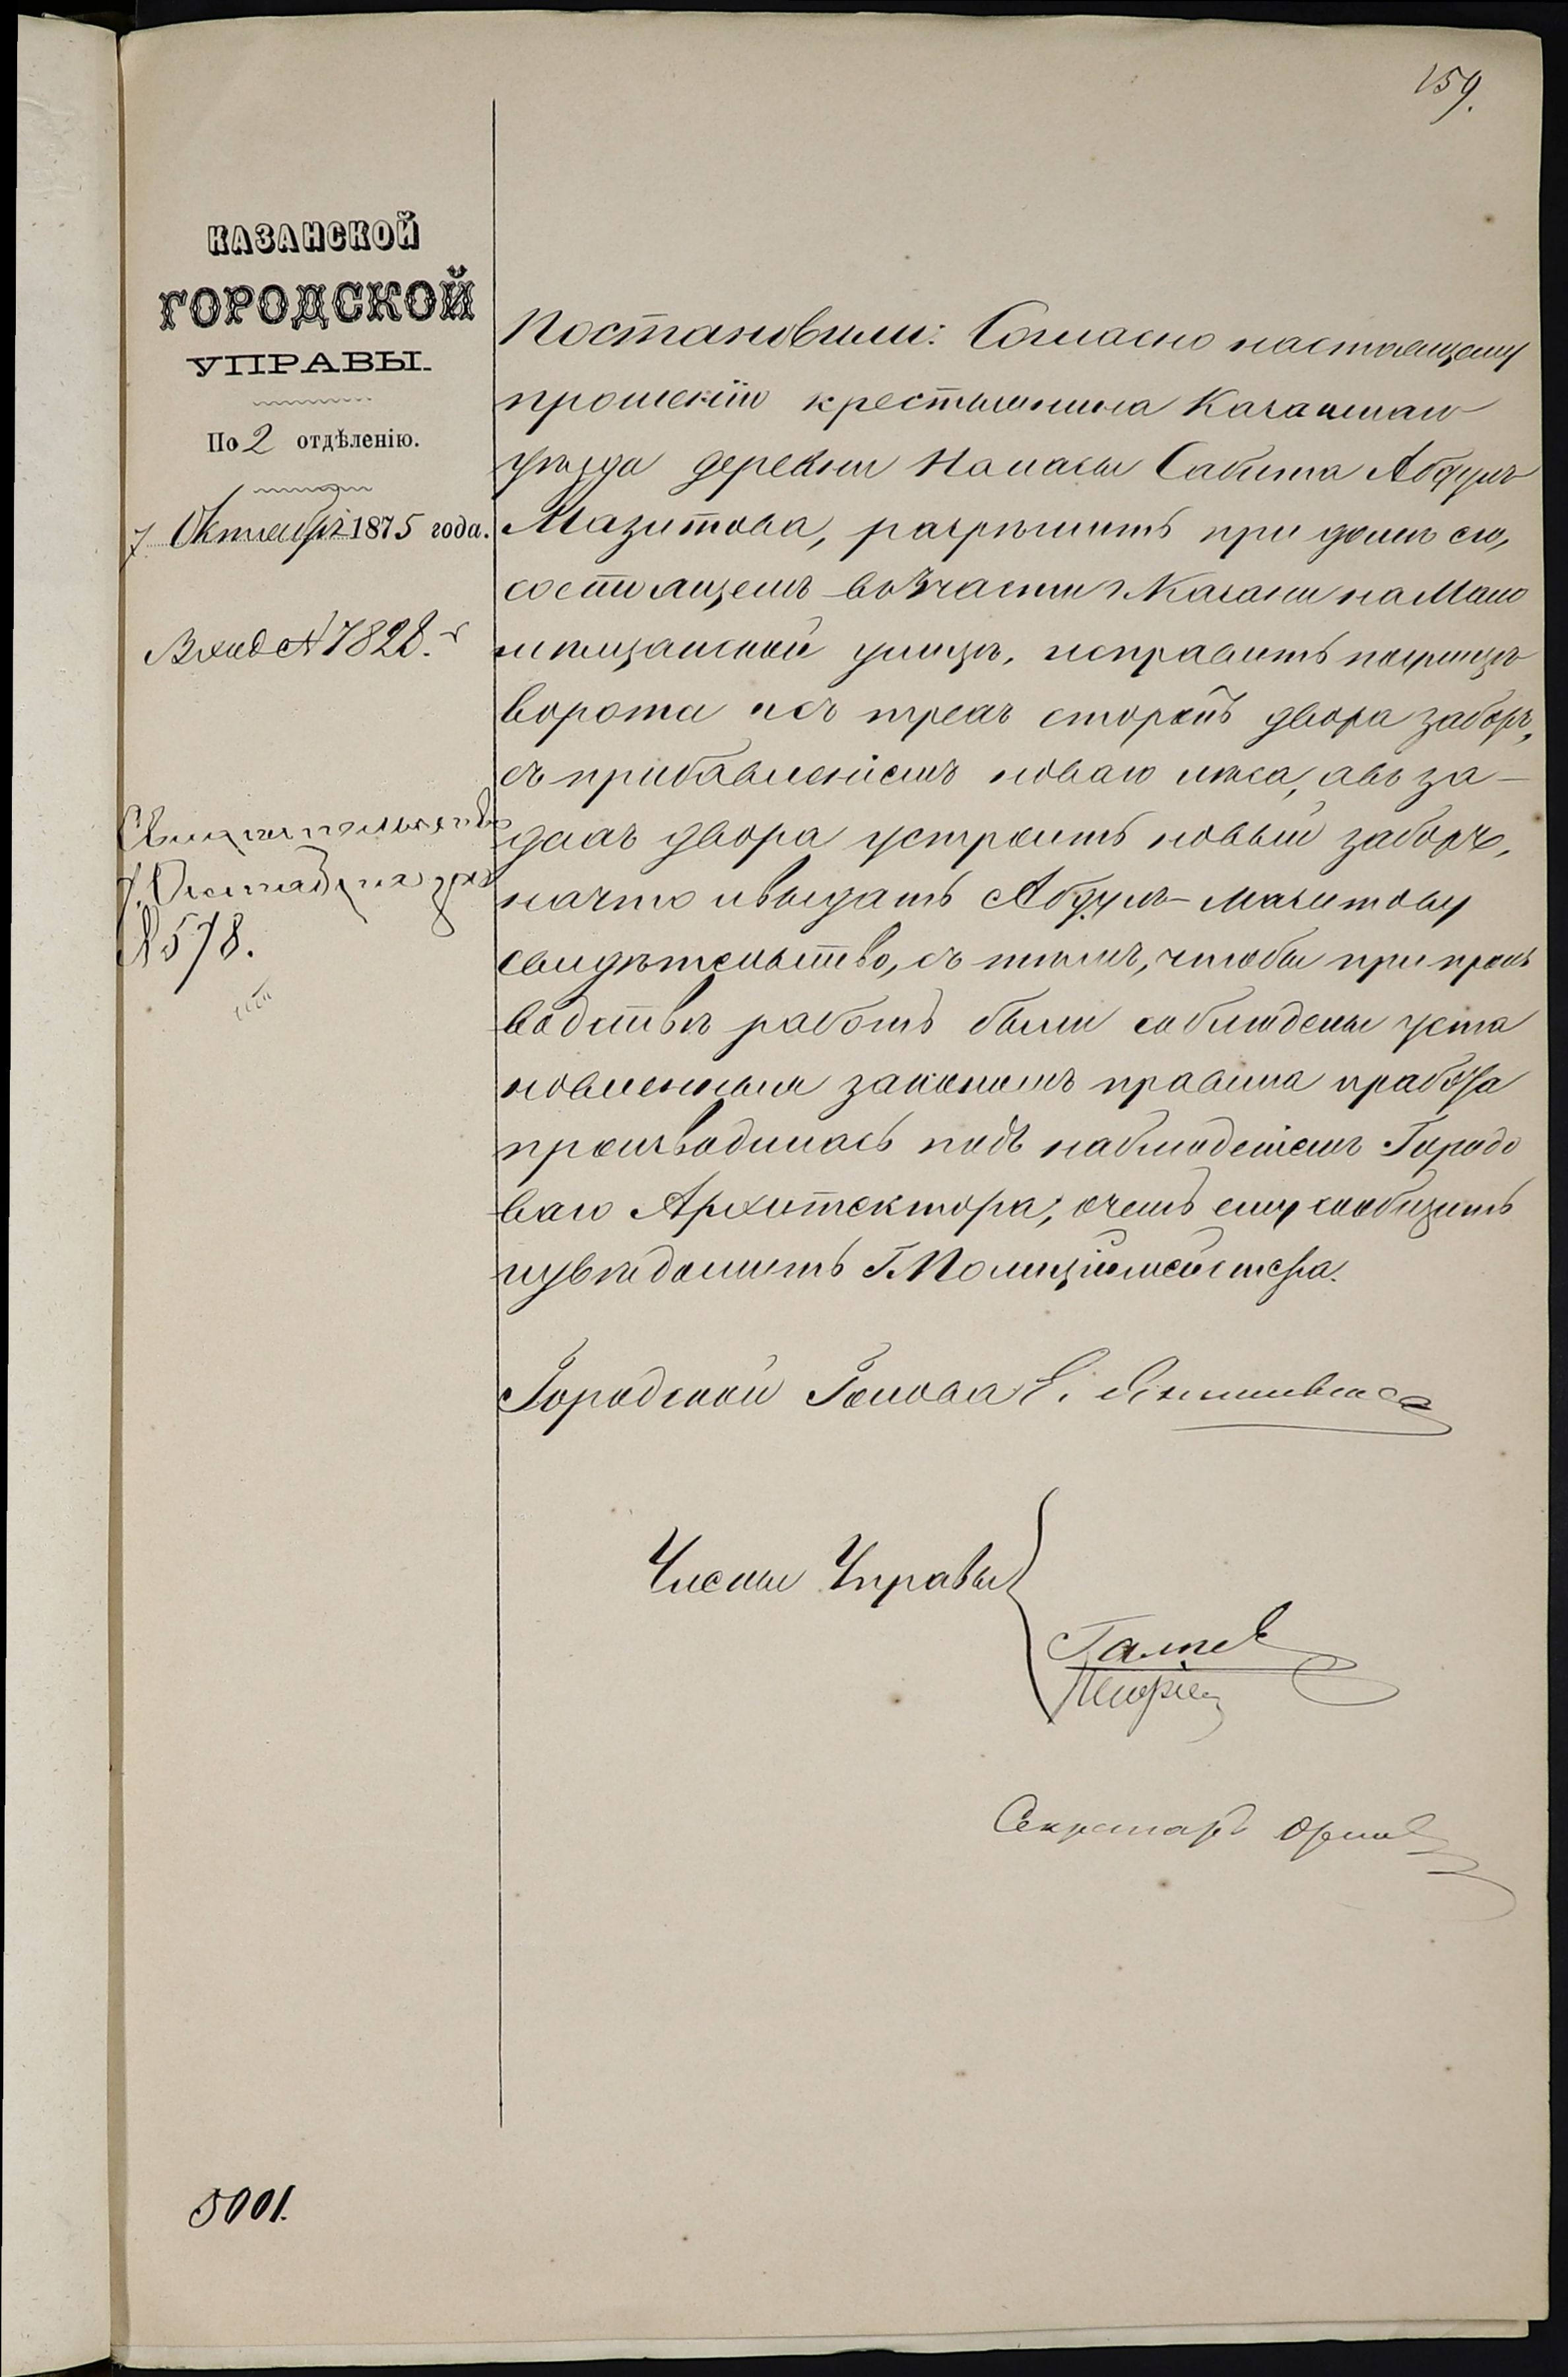 159.
КАЗАНСКОЙ
ГОРОДСКОЙ
УПРАВЫ.
По 2 отдѣленію.
7 Октября 1875 года.
Вход № 7828.
Свидѣтельство
7 Октября
№ 578.
Постановили: Согласно настоящему
прошенію крестьянина Казанскаго
уѣзда деревни Наласы Сабита Абдулъ
Мазитова, разрѣшить при домѣ его,
состоящемъ во части г. Казани на Мало
мѣщанской улицѣ, исправить по улицѣ
ворота и съ трехъ сторонъ двора заборъ,
съ прибавленіемъ новаго лѣса, а въ за-
дахъ двора устроить новый заборъ,
на что и выдать Абдулъ-Мазитову
свидѣтельство, съ тѣмъ, чтобы при произ
водствѣ работъ были соблюдены уста
новленныя закономъ правила и работа
производилась подъ наблюденіемъ Городо
ваго Архитектора, о чемъ ему сообщить
и увѣдомить Г. Полиціймейстера.
Городской Голова Э. Янишевскій
Члены Управы
Галѣев
Секретарь Орлов
5001.